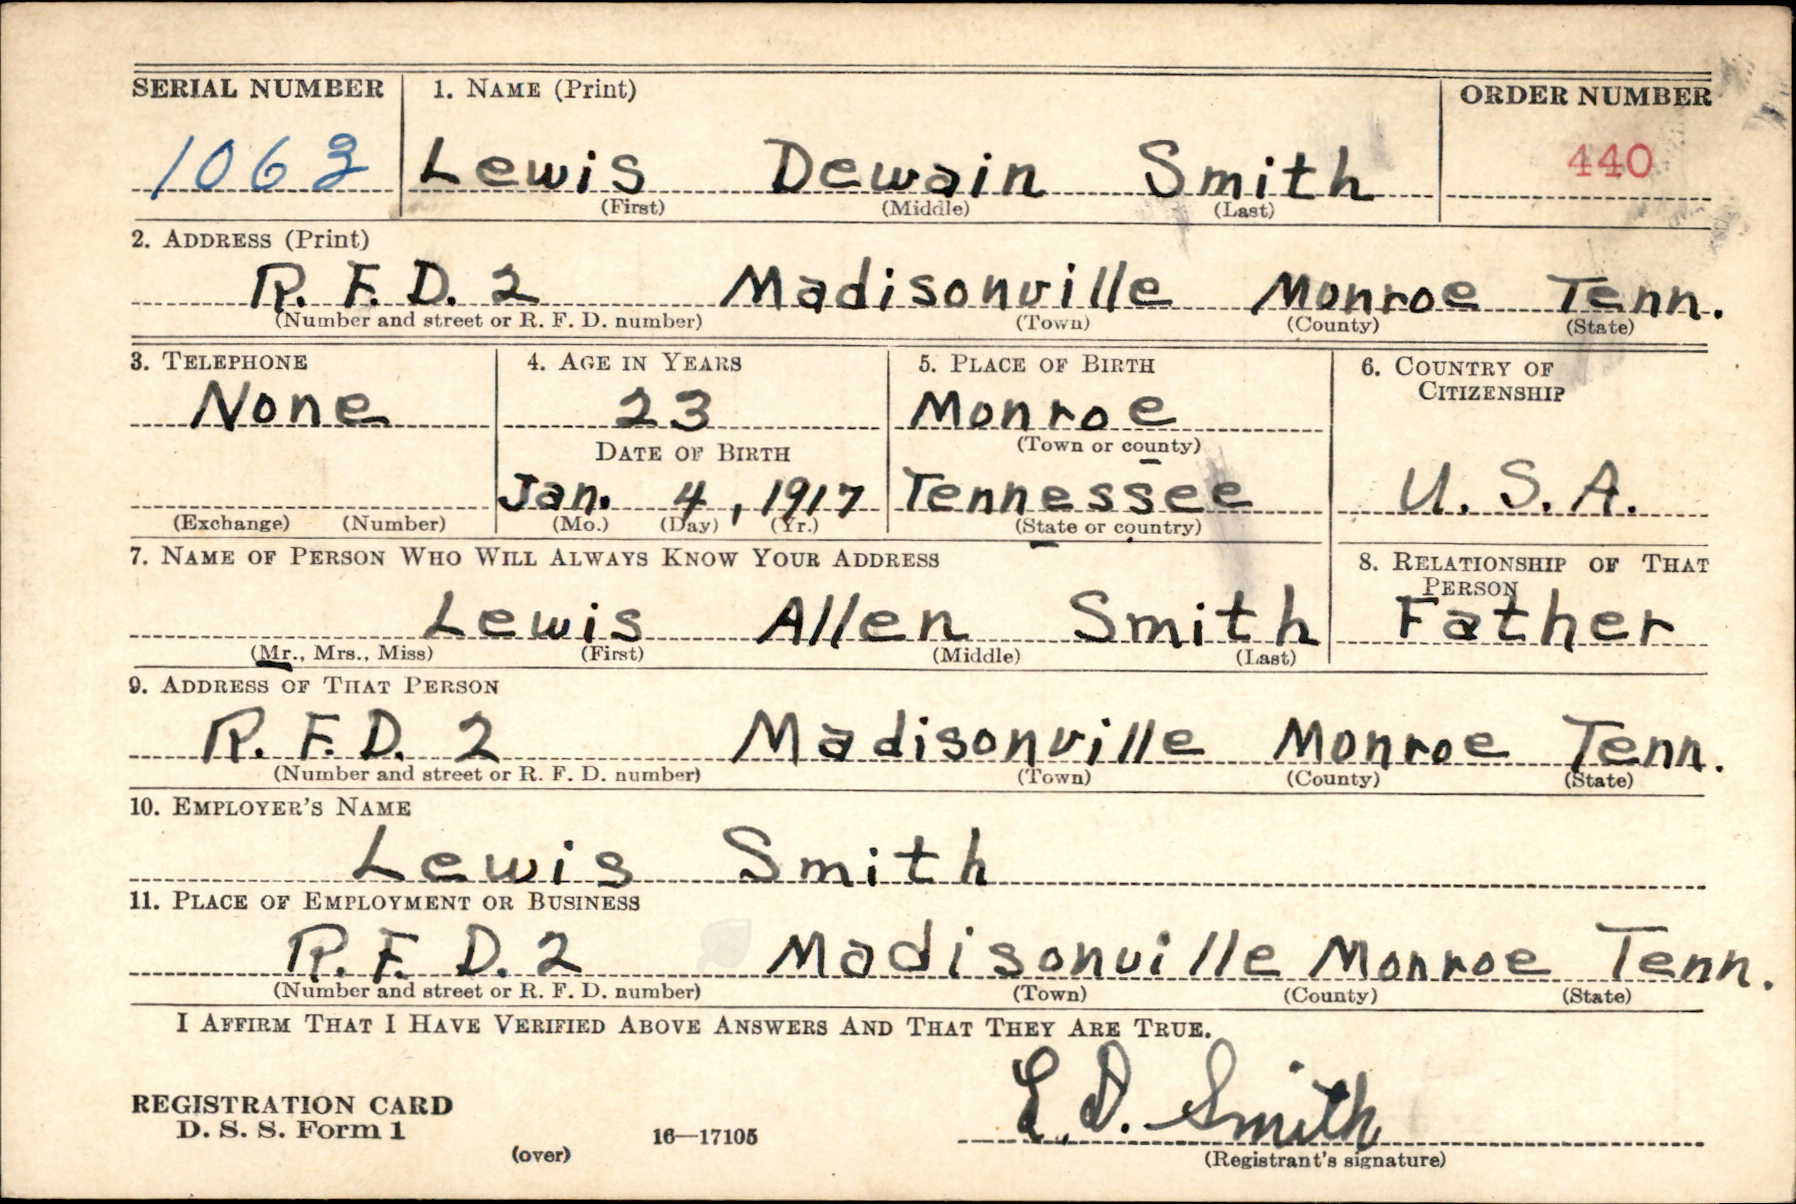 SERIAL NUMBER 1. NAME (Print) ORDER NUMBER
1063 Lewis Dewain Smith 440
(First) (Middle) (Last)
2. ADDRESS (Print)
R. F. D. 2 Madisonville Monroe Tenn.
(Number and street or R. F. D. number) (Town) (County) (State)
3. TELEPHONE 4. AGE IN YEARS 5. PLACE OF BIRTH 6. COUNTRY OF
CITIZENSHIP
None 23 Monroe
DATE OF BIRTH (Town or county)
Jan. 4, 1917 Tennessee U. S. A.
(Exchange) (Number) (Mo.) (Day) (Yr.) (State or country)
7. NAME OF PERSON WHO WILL ALWAYS KNOW YOUR ADDRESS 8. RELATIONSHIP OF THAT
PERSON
Lewis Allen Smith Father
(Mr., Mrs., Miss) (First) (Middle) (Last)
9. ADDRESS OF THAT PERSON
R. F. D. 2 Madisonville Monroe Tenn.
(Number and street or R. F. D. number) (Town) (County) (State)
10. EMPLOYER'S NAME
Lewis Smith
11. PLACE OF EMPLOYMENT OR BUSINESS
R. F. D. 2 Madisonville Monroe Tenn.
(Number and street or R. F. D. number) (Town) (County) (State)
I AFFIRM THAT I HAVE VERIFIED ABOVE ANSWERS AND THAT THEY ARE TRUE.
REGISTRATION CARD L. D. Smith
D. S. S. Form 1 16—17105
(over) (Registrant's signature)